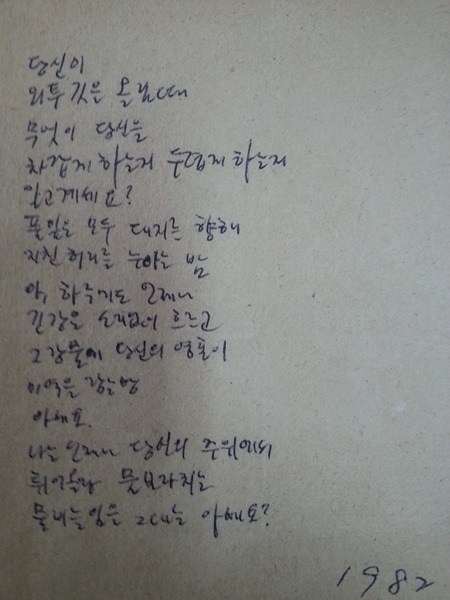 당신이
외투 깃은 올릴때
무엇이 당신을
차갑게 하는지 두렵게 하는지
알고계세요?
풀잎은 모두 대지를 향해
지친 허리를 눕이는 밤
아, 하늘에도 언제나
긴강은 소리없이 흐르고
그 강물에 당신의 영혼이
미역을 감는밤
아세요.
나는 언제나 당신의 주위에서
튀어올라 물보라치는
물내늘임은 그대는 아세요?
1982